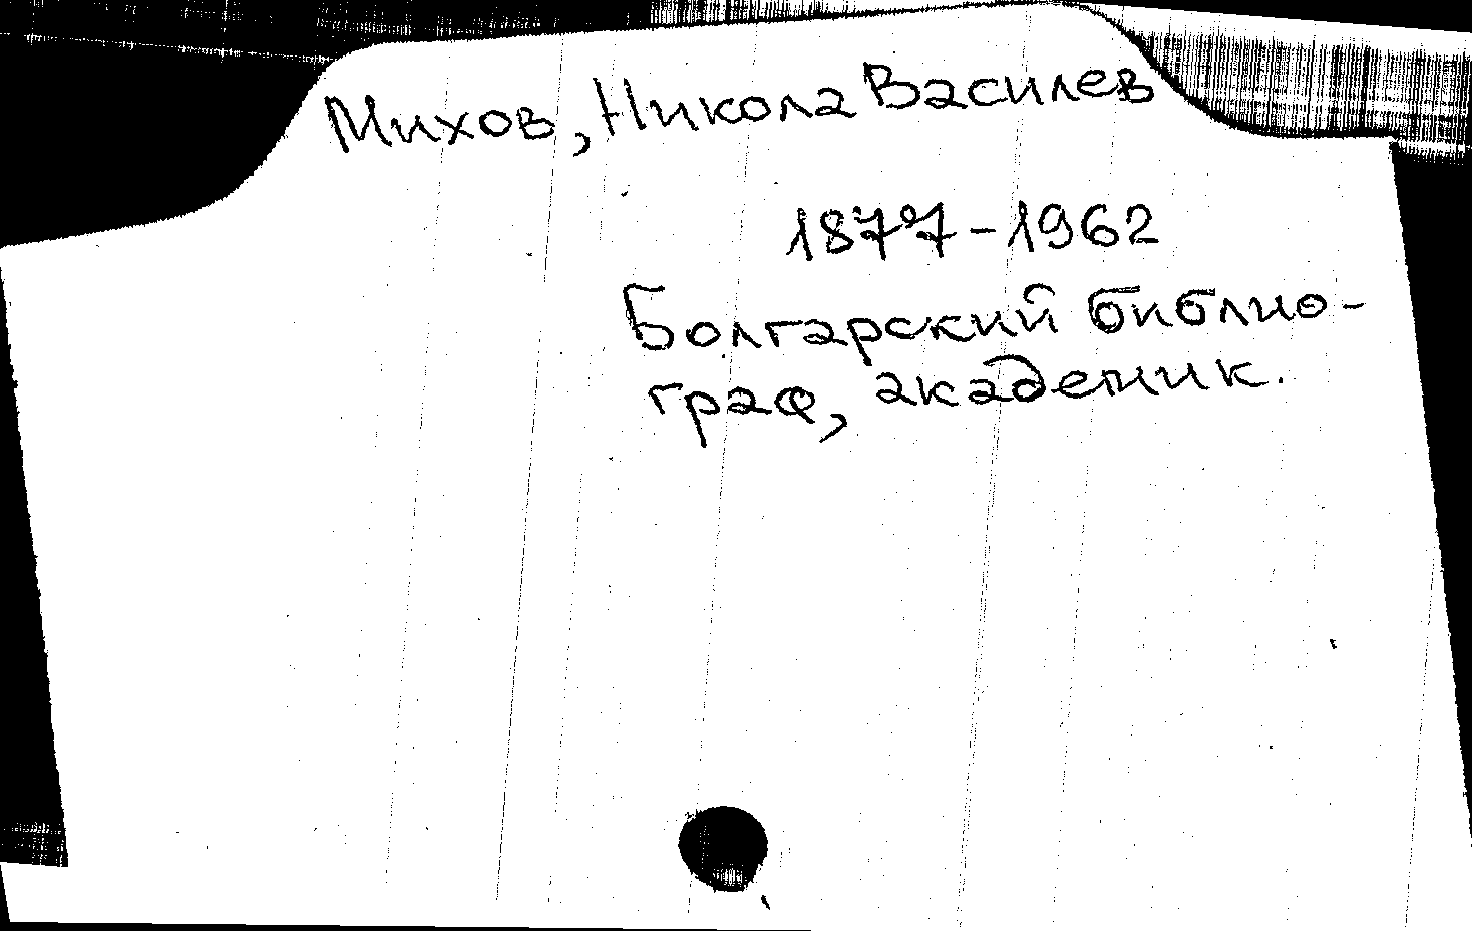 Михов, Никола Василев
1877-1962
Болгарский библио-
граф, академик.